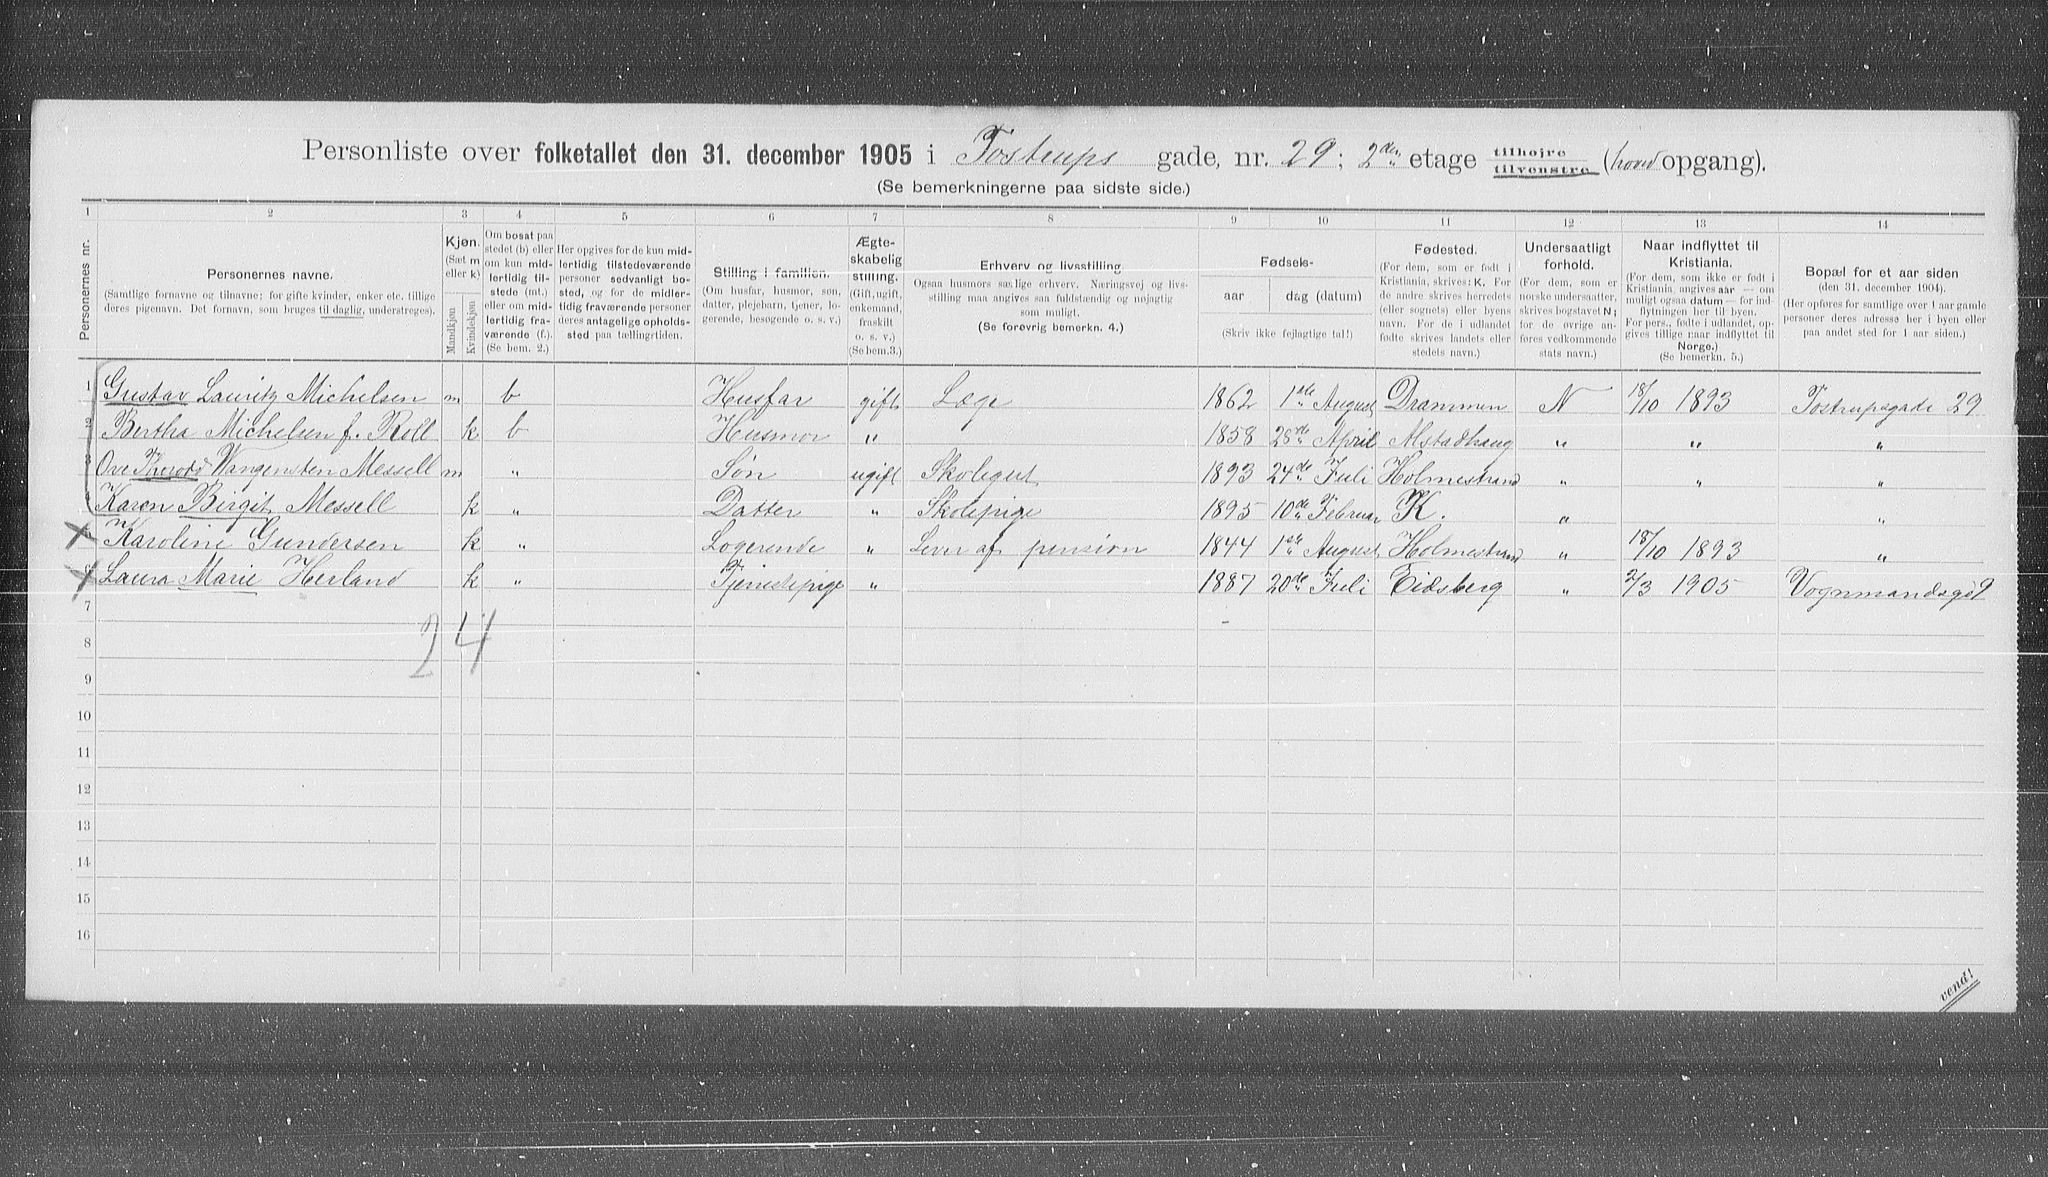 Personliste over folketallet den 31. december 1905 i Tostrups gade, nr. 29; 2den etage tilhøjre tilvenstre (hovedopgang).
(Se bemerkningerne paa sidste side.)
1 2 3 4 5 6 7 8 9 10 11 12 13 14
Personernes nr.
Personernes navne.
(Samtlige fornavne og tilnavne; for gifte kvinder, enker etc. tillige
deres pigenavn. Det fornavn, som bruges til daglig, understreges).
Kjøn.
(Sæt m
eller k)
Mandkjøn
Kvindekjøn
Om bosat paa
stedet (b) eller
om kun mid-
lertidig til-
stede (mt.)
eller om mid-
lertidig fra-
værende (f.).
(Se bem. 2.)
Her opgives for de kun mid-
lertidig tilstedeværende
personer sedvanligt bo-
sted, og for de midler-
tidig fraværende personer
deres antagelige opholds-
sted paa tællingstiden.
Stilling i familien.
(Om husfar, husmor, søn,
datter, plejebarn, tjener, lo-
gerende, besøgende o. s. v.)
Ægte-
skabelig
stilling.
(Gift, ugift,
enkemand,
fraskilt
o. s. v.)
(Se bem. 3.)
Erhverv og livsstilling.
Ogsaa husmors særlige erhverv. Næringsvej og livs-
stilling maa angives saa fuldstændig og nøjagtig
som muligt.
(Se forøvrig bemerkn. 4.)
Fødsels-
aar dag (datum)
(Skriv ikke fejlagtige tal!)
Fødested.
(For dem, som er født i
Kristiania, skrives: K. For
de andre skrives herredets
(eller sognets) eller byens
navn. For de i udlandet
fødte skrives landets eller
stedets navn.)
Undersaatligt
forhold.
(For dem, som er
norske undersaatter,
skrives bogstavet N;
for de øvrige an-
føres vedkommende
stats navn.)
Naar indflyttet til
Kristiania.
(For dem, som ikke er født i
Kristiania, angives aar — om
muligt ogsaa datum — for ind-
flytningen her til byen.
For pers., fødte i udlandet, op-
gives tillige naar indflyttet til
Norge.)
(Se bemerkn. 5.)
Bopæl for et aar siden
(den 31. december 1904).
(Her opføres for samtlige over 1 aar gamle
personer deres adresse her i byen eller
paa andet sted for 1 aar siden.)
1 Gustav Lauritz Michelsen m b Husfar gift Læge 1862 1ste August Drammen N 18/10 1893 Tostrupsgade 29
2 Bertha Michelsen f. Roll k b Husmor " 1858 28de April Alstadhaug " " "
3 Ove Wangensten Messell m " Søn ugift Skolegut 1893 24de Juli Holmestrand " " "
4 Karen Birgit Messell k " Datter " Skolepige 1895 10de Februar K. " "
5 Karoline Gundersen k " Logerende " Lever af pension 1844 1ste August Holmestrand " 18/10 1893 "
6 Laura Marie Herland k " Tjenestepige " 1887 20de Juli Eidsberg " 2/3 1905 Vognmandsgd 9
7
2 4
8
9
10
11
12
13
14
15
16
vend!